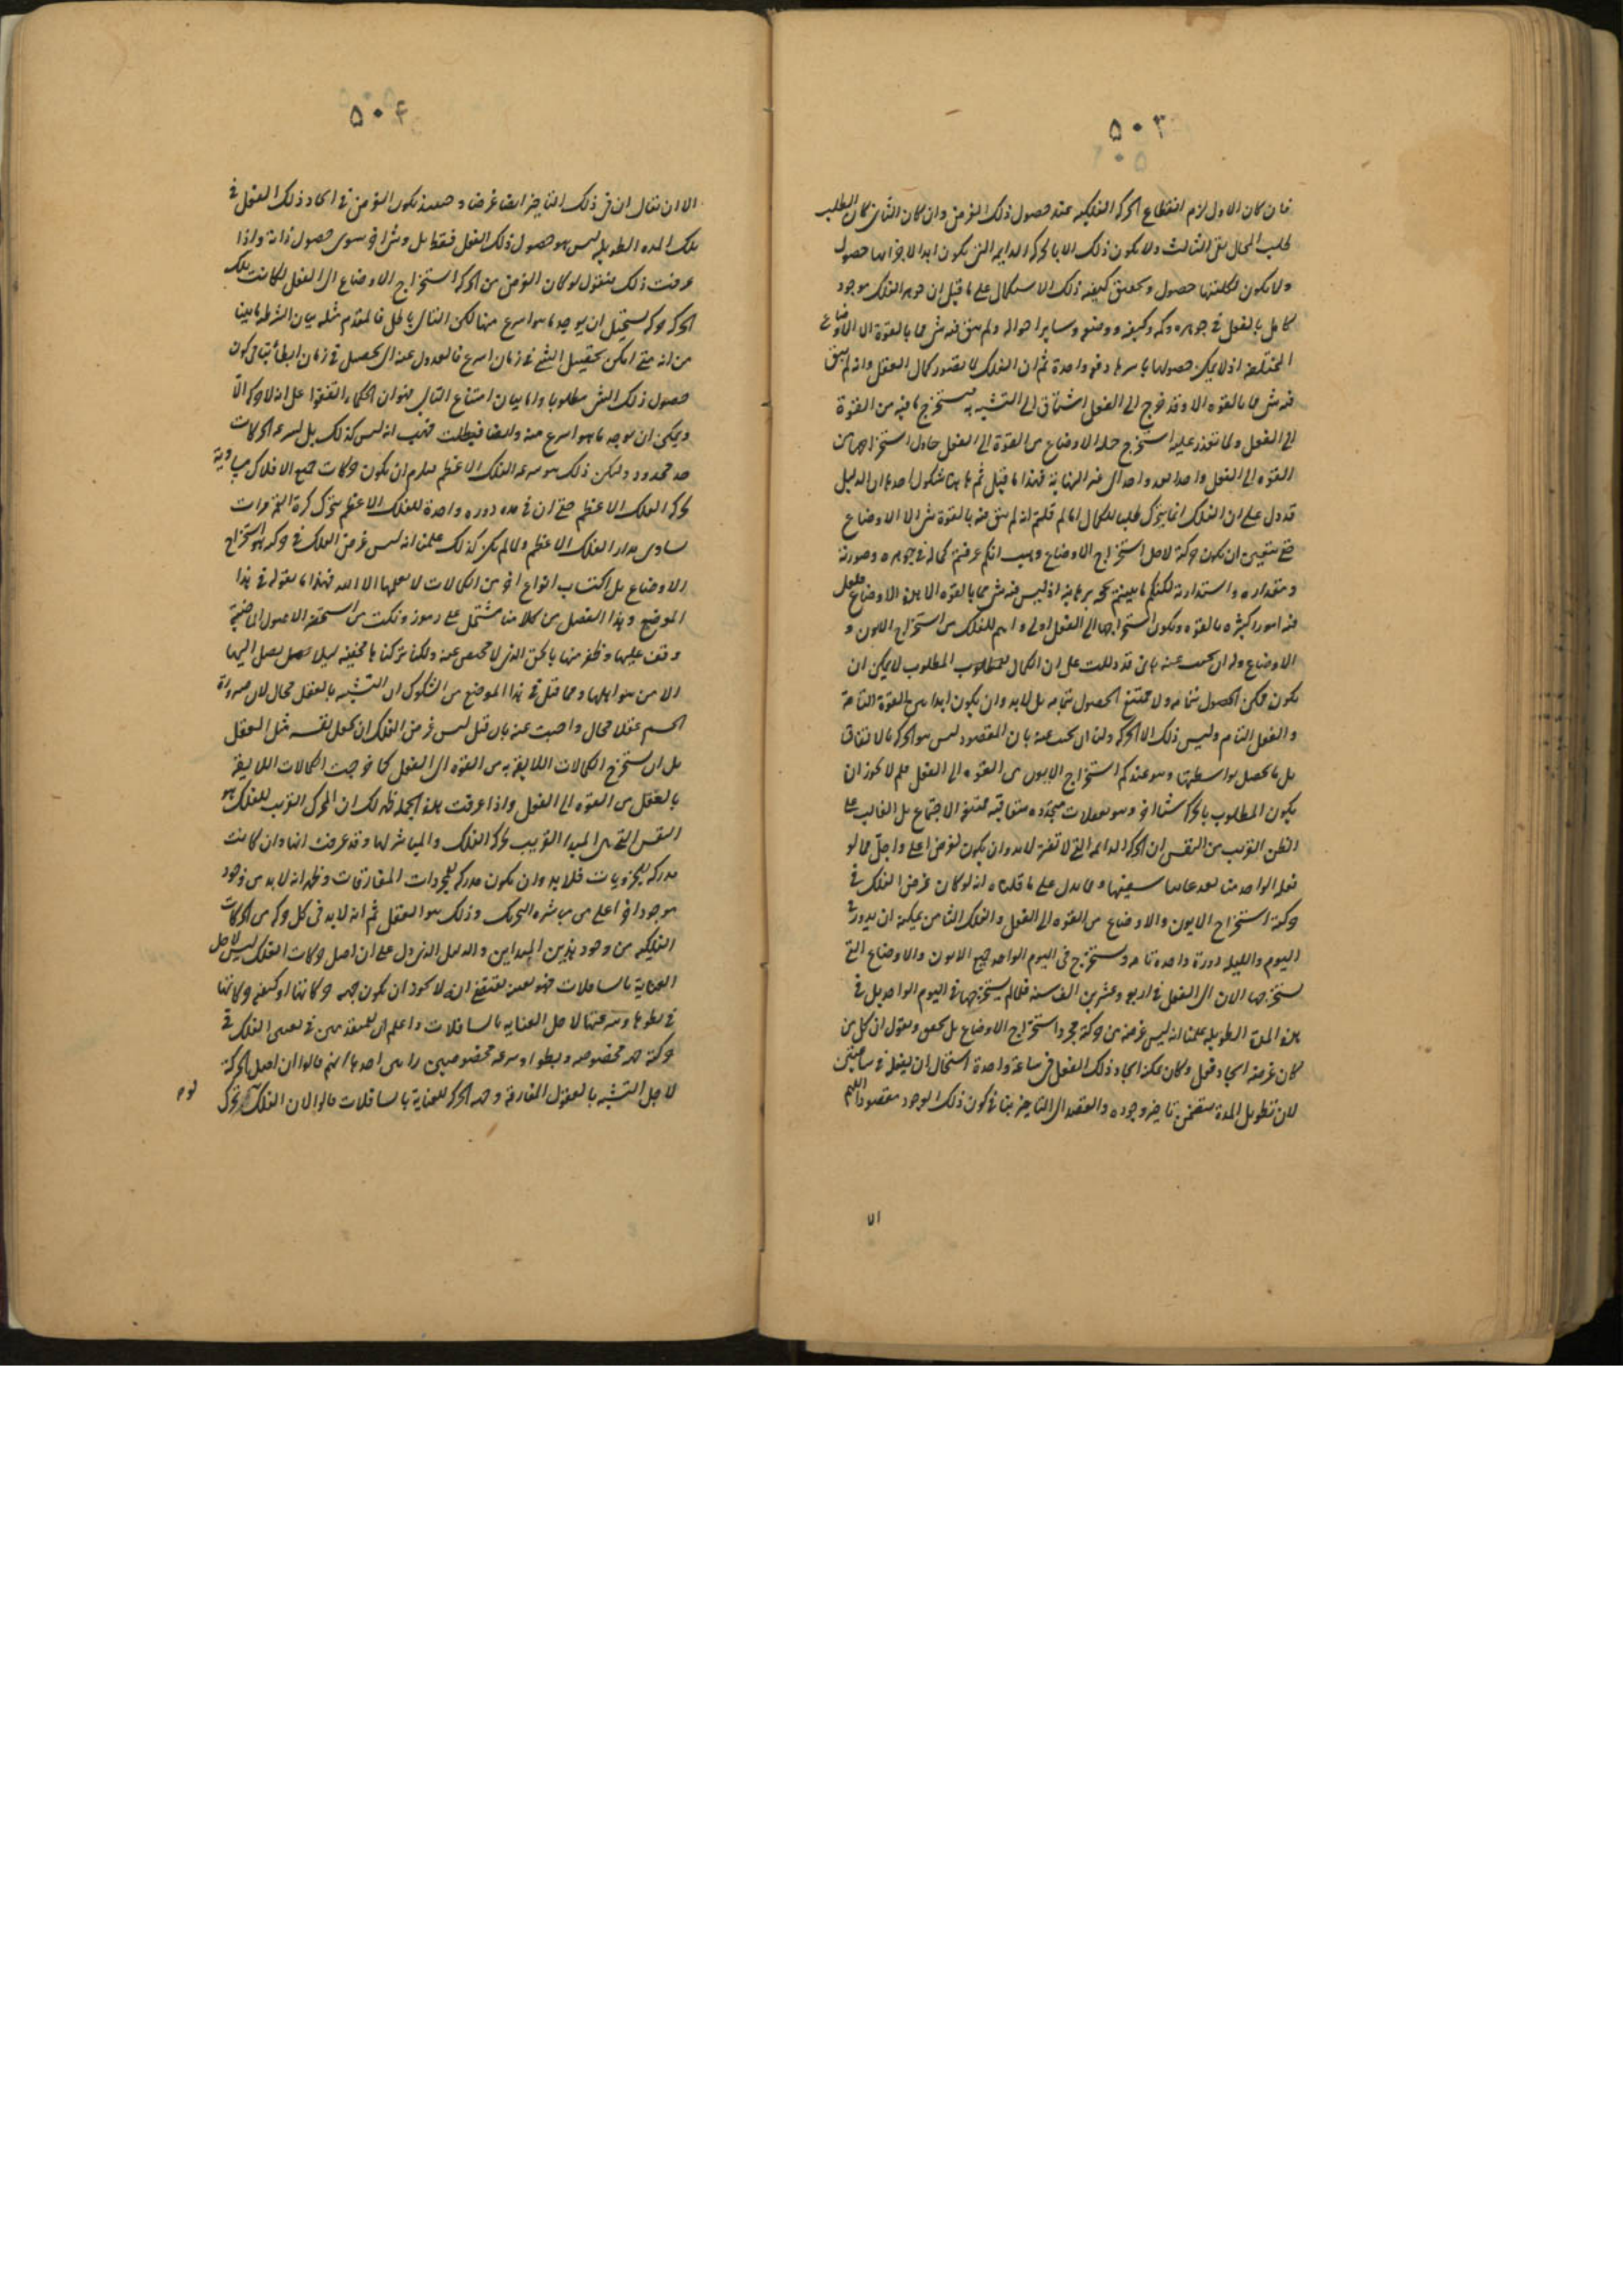 ٥٠٣
فان كان الاول لزم انقطاع الحركة الفلكيه عند حصول ذلك الغرض وان كان الثانى كان الطلب
طلب المحال بقى الثالث ولا يكون ذلك الا بالحركة الدايمه التى يكون ابدا لاجزائها حصول
ولا يكون لكليتها حصول وتحقيق كيفيه ذلك الاستكمال على ما قيل ان جوهر الفلك موجود
كامل بالفعل فى جوهره وكمه وكيفه ووضعه وساير احواله ولم يبق فيه شى مما بالقوة الا الاوضاع
المختلفه اذ لا يمكن حصولها باسرها دفعة واحدة ثم ان الفلك لما تصور كمال العقل وانه لم يبق
فيه شى مما بالقوه الا وقد خرج الى الفعل اشتاق الى التشبه به فيستخرج ما فيه من القوة
الى الفعل ولما تعذر عليه استخراج جملة الاوضاع من القوة الى الفعل حاول استخراجها من
القوه الى الفعل واحدا بعد واحد الى غير النهاية فهذا ما قيل ثم هاهنا شكوك احدها ان الدليل
قد دل على ان الفلك انما يتحرك طلبا للكمال اما لم قلتم انه لم يبق فيه بالقوة شى الا الاوضاع
حتى يتعين ان يكون حركة لاجل استخراج الاوضاع وهب انكم عرفتم كماله فى جوهره وصورته
ومقداره واستدارته لكنكم ما بينتم بحجة برهانية اذ ليس فيه شى مما بالقوه الا هذه الاوضاع فلعل
فيه امورا كثيره بالقوه ويكون استخراجها الى الفعل اولى واهم للفلك من استخراج الايون و
الاوضاع وله ان يجيب عنه بانى قد دللت على ان الكمال المطلوب لا يمكن ان
يكون ممكن الحصول بتمامه ولا ممتنع الحصول بتمامه بل لابد وان يكون ابدا بين القوة التامة
والفعل التام وليس ذلك الا الحركة ولنا ان نجيب عنه بان المقصود ليس هو الحركة بالاتفاق
بل ما يحصل بواسطتها وهو عندكم استخراج الايون من القوه الى الفعل فلم لا يجوز ان
يكون المطلوب بالحركة شيئا اخر وهو تعقلات متجدده متعاقبه ممتنع الاجتماع بل الغالب على
الظن القريب من النفس ان الحركة الدائمه التى لا تفتر لابد وان يكون لغرض اعلى واجل مما لو
فعله الواحد منا لعد عابثا سفيها ومما يدل على ما قلناه انه لو كان غرض الفلك فى
حركة استخراج الايون والاوضاع من القوه الى الفعل والفلك الثامن يمكنه ان يدور فى
اليوم والليله دورة واحدة تامه ويستخرج فى اليوم الواحد جميع الايون والاوضاع التى
يستخرجها الان الى الفعل فى اربع وعشرين الف سنه فلما لم يستخرجها فى اليوم الواحد بل فى
هذه المدة الطويله علمنا انه ليس غرضه من حركة مجرد استخراج الاوضاع بل نحقق ونقول ان كل من
كان غرضه ايجاد فعل وكان يمكنه ايجاد ذلك الفعل فى ساعة واحدة استحال ان يفعله فى ساعتين
لان تطويل المدة يتضمن تاخير وجوده والقصد الى التاخير ينافى كون ذلك الوجود مقصودا اللهم
الا
٥٠۴
الا ان يقال ان فى ذلك التاخير ايضا غرضا وحينئذ يكون الغرض فى ايجاد ذلك الفعل فى
تلك المده الطويله ليس هو حصول ذلك الفعل فقط بل وشى اخر سوى حصول ذاته واذا
عرفت ذلك فنقول لو كان الغرض من الحركة استخراج الاوضاع الى الفعل لكانت تلك
الحركة حركة يستحيل ان يوجد ما هو اسرع منها لكن التالى باطل فالمقدم مثله بيان الشرطيه ما بينا
من انه متى امكن تحصيل الشى فى زمان اسرع فالعدول عنه الى تحصيله فى زمان ابطا ينافى كون
حصول ذلك الشى مطلوبا واما بيان امتناع التالى فهو ان الحكماء اتفقوا على انه لا حركة الا
ويمكن ان يوجد ما هو اسرع منه وايضا فبطلت فهب انه ليس كذلك بل لسرعه الحركات
حد محدود وليكن ذلك هو سرعه الفلك الاعظم فيلزم ان يكون حركات جميع الافلاك مساوية
لحركة الفلك الاعظم حتى ان فى مده دوره واحدة للفلك الاعظم يتحرك كرة القمر مرات
يساوى مدار الفلك الاعظم ولما لم يكن كذلك علمنا انه ليس غرض الفلك فى حركته هو استخراج
الاوضاع بل اكتساب انواع اخر من الكمالات لا يعلمها الا الله فهذا ما نقوله فى هذا
الموضع وهذا الفصل من كلامنا مشتمل على رموز ونكت من استحقه الاصول الماضية
وقف عليها وظفر منها بالحق الذى لا محيص عنه ولكنا تركناها مخفية ليلا يصل اليها
الا من هو اهلها ومما قيل فى هذا الموضع من الشكوك ان التشبه بالعقل محال لان صيرورة
الجسم عقلا محال واجيب عنه بان قيل ليس غرض الفلك ان يجعل نفسه مثل العقل
بل ان يستخرج الكمالات اللايقه به من القوه الى الفعل كما خرجت الكمالات اللايقة
بالعقل من القوه الى الفعل واذا عرفت هذه الجمله ظهر لك ان المحرك القريب للفلك هو
النفس التى هى المبدا القريب لحركة الفلك والمباشر لها وقد عرفت انها وان كانت
مدركة للجزويات فلابد وان يكون مدركه للمجردات المفارقات وظهر انه لابد من وجود
موجود اخر اعلى من مباشره التحريك وذلك هو العقل ثم انه لابد فى كل حركة من الحركات
الفلكيه من وجود هذين المبداين والدليل الذى دل على ان اصل حركات الفلك ليس لاجل
العناية بالسافلات فهو بعينه يقتضى انه لا يجوز ان يكون جهه حركاتها او كيفيه حركاتها
فى بطوها وسرعتها لاجل العنايه بالسافلات واعلم ان للمتقدمين فى تعيين الفلك فى
حركته جهه مخصوصه وبطوا وسرعه مخصوصين رايين احدهما انهم قالوا ان اصل الحركة
لاجل التشبه بالعقول المفارقة وجهه الحركة للعناية بالسافلات قالوا لان الفلك تحرك